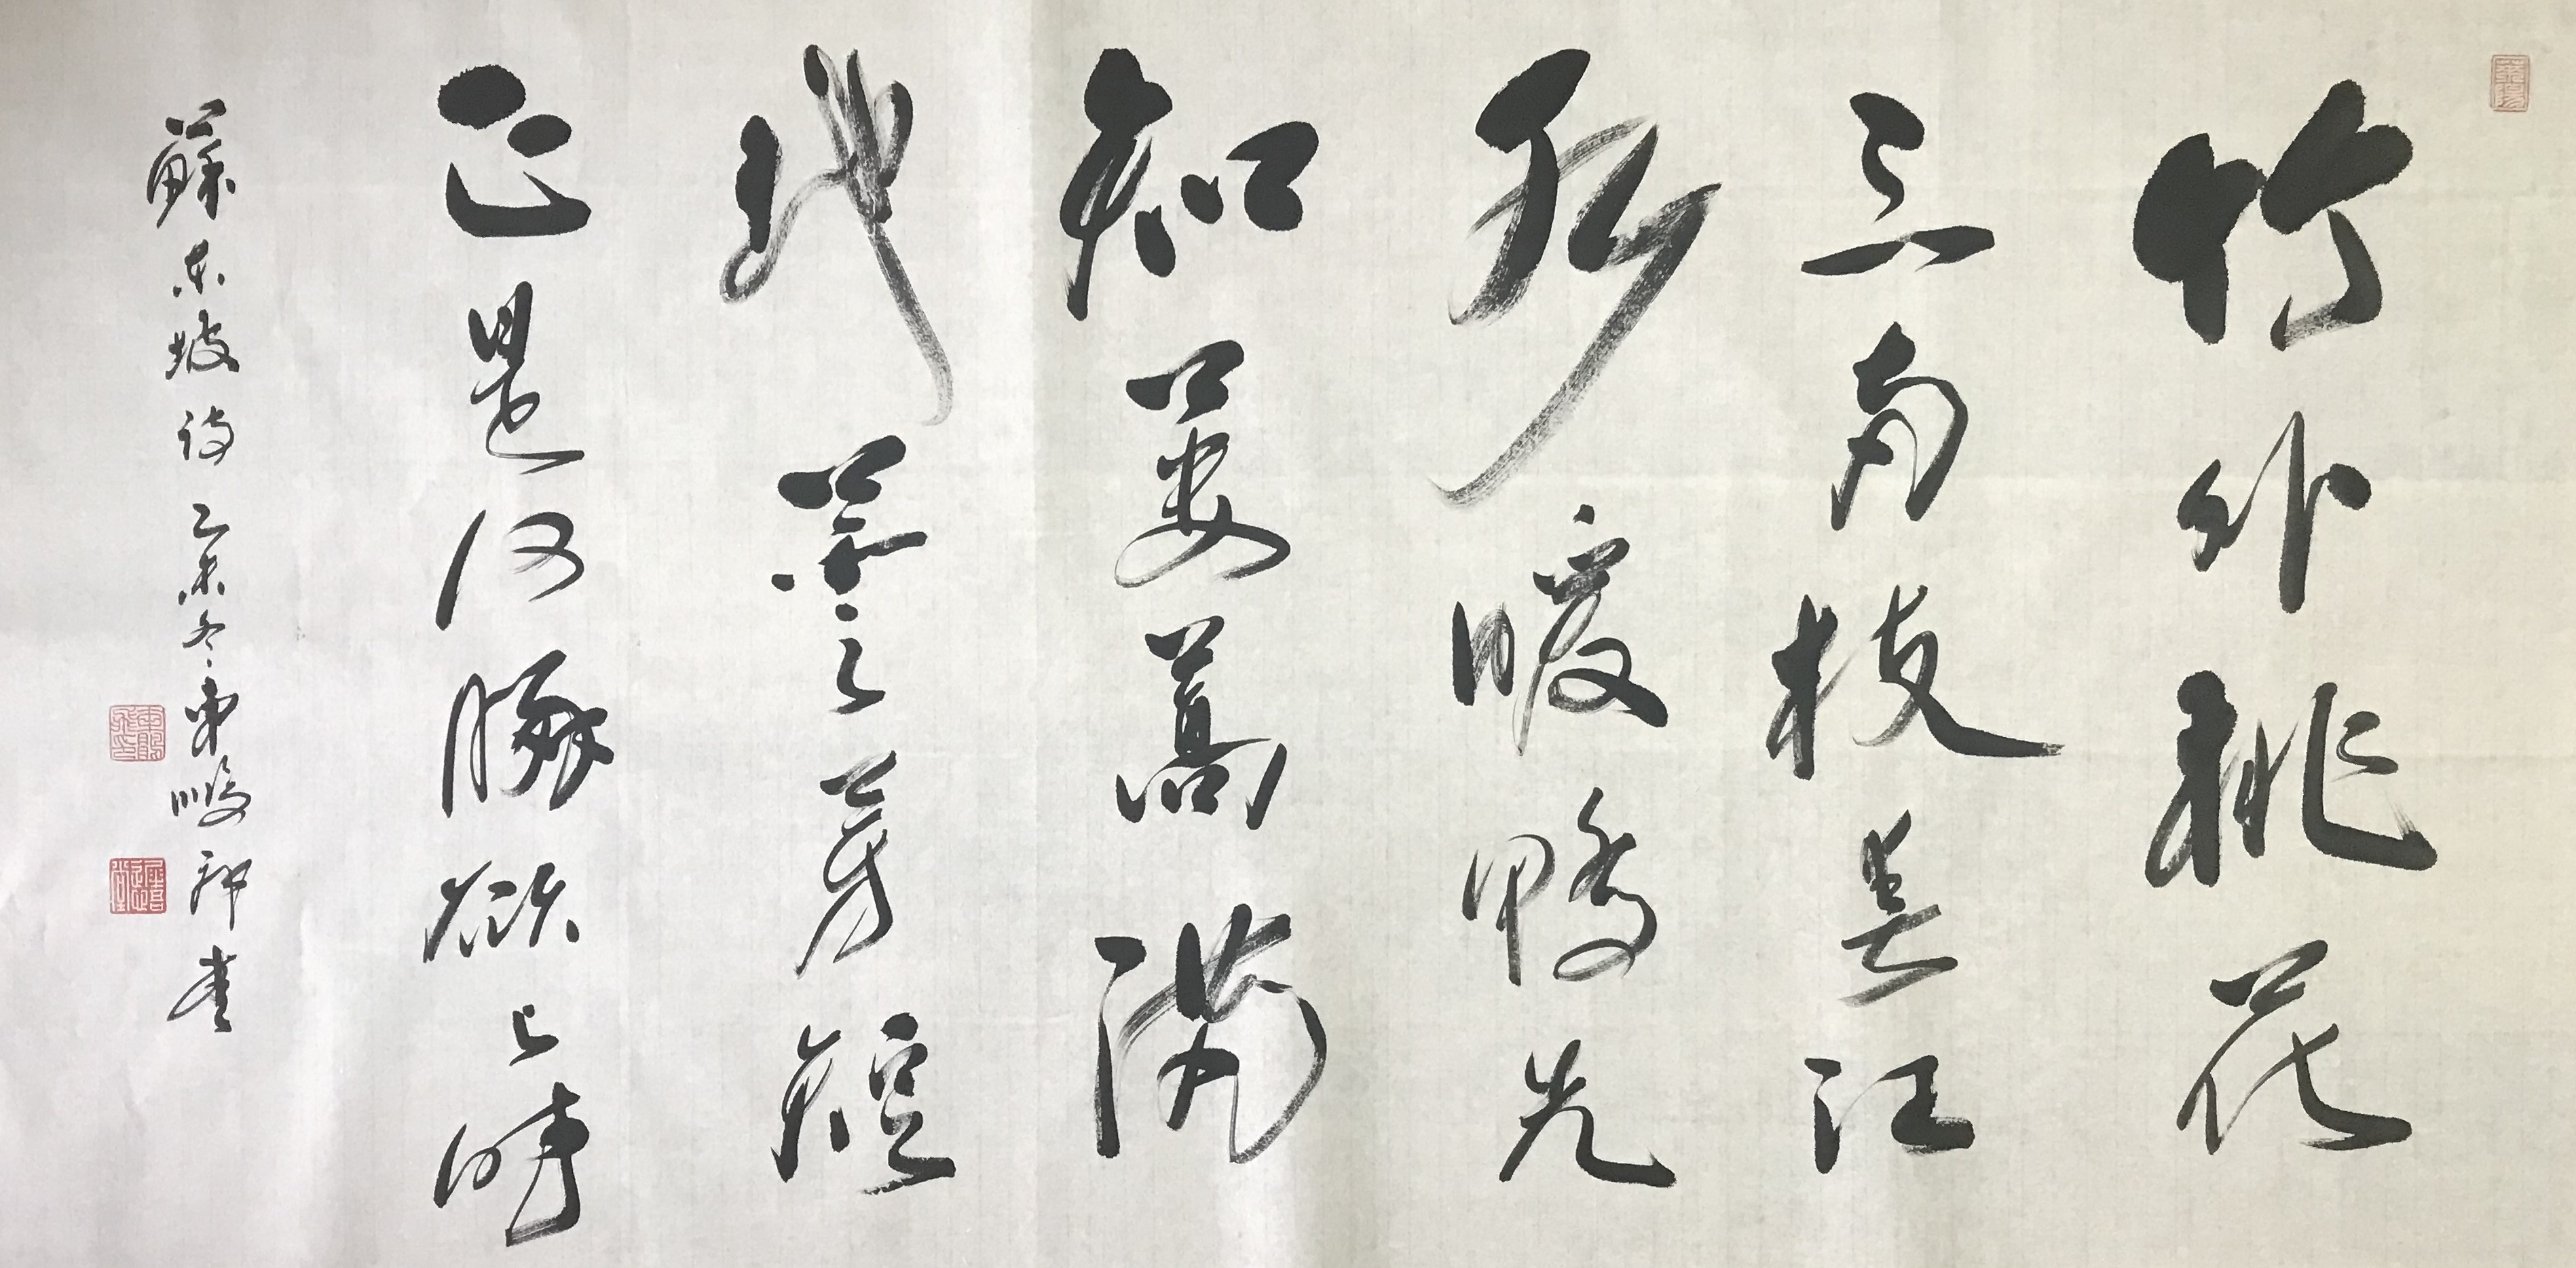 竹外桃花
三兩枝春江
水暖鴨先
知蔞蒿滿
地蘆芽短
正是河豚欲上時
蘇東坡詩 乙未冬 書